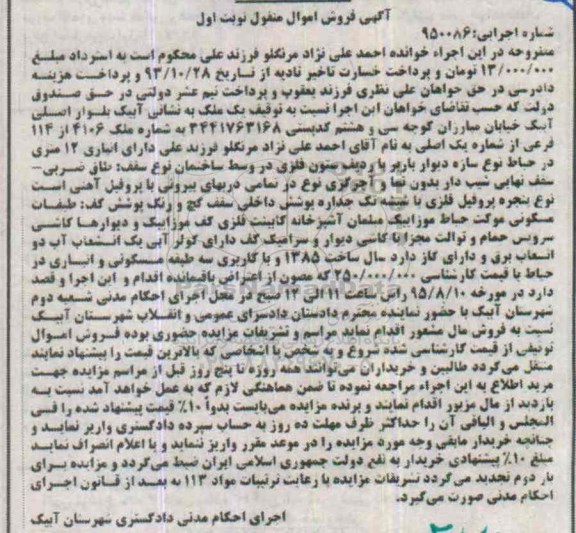 آگهی فروش اموال منقول نوبت اول
شماره اجرایی: ۹۵۰۰۸۶
مشروحه در این اجراء خوانده احمد علی نژاد مرنگلو فرزند علی محکوم است به استرداد مبلغ
۱۳/۰۰۰/۰۰۰ تومان و پرداخت خسارت تاخیر تادیه از تاریخ ۹۳/۱۰/۲۸ و پرداخت هزینه
دادرسی در حق خواهان علی نظری فرزند یعقوب و پرداخت نیم عشر دولتی در حق صندوق
دولت که حسب تقاضای خواهان این اجرا نسبت به توقیف یک ملک به نشانی آبیک بلوار اصلی
آبیک خیابان مبارزان کوچه سی و هشتم کدپستی ۳۴۴۱۷۶۳۱۶۸ به شماره ملک ۴۱۰۶ از ۱۱۴
فرعی از شماره یک اصلی به نام آقای احمد علی نژاد مرنگلو فرزند علی دارای انباری ۱۲ متری
در حیاط نوع سازه دیوار باربر با ردیف ستون فلزی در وسط ساختمان نوع سقف: طاق ضربی-
سقف نهایی شیب دار بدون نما و آجرکری نوع در تمامی دربهای بیرونی با پروفیل آهنی است
نوع پنجره پروفیل فلزی با شیشه تک جداره پوشش داخلی سقف گچ و رنگ پوشش کف: طبقات
مسکونی موکت حیاط موزاییک مبلمان آشپزخانه کابینت فلزی کف موزاییک و دیوارها کاشی
سرویس حمام و توالت مجزا با کاشی دیوار و سرامیک کف دارای کولر آبی یک انشعاب آب دو
انشعاب برق و دارای گاز دارد سال ساخت ۱۳۸۵ و با کاربری سه طبقه مسکونی و انباری در
حیاط با قیمت کارشناسی ۲۵۰/۰۰۰/۰۰۰ که مصون از اعتراض باقیمانده اقدام و این اجرا و قصد
دارد در مورخه ۹۵/۸/۱۰ راس ساعت ۱۱ الی ۱۲ صبح در محل اجرای احکام مدنی شعبه دوم
شهرستان آبیک با حضور نماینده محترم دادستان دادسرای عمومی و انقلاب شهرستان آبیک
نسبت به فروش مال مشعور اقدام نماید مراسم و تشریفات مزایده حضوری بوده فروش اموال
توقیفی از قیمت کارشناسی شده شروع و به شخص یا اشخاصی که بالاترین قیمت را پیشنهاد نمایند
منتقل می‌گردد طالبین و خریداران می‌توانند همه روزه تا پنج روز قبل از مراسم مزایده جهت
مزید اطلاع به این اجراء مراجعه نموده تا ضمن هماهنگی لازم که به عمل خواهد آمد نسبت به
بازدید از مال مزبور اقدام نمایند و برنده مزایده می‌بایست بدوا ۱۰٪ قیمت پیشنهاد شده را فی
المجلس و الباقی آن را حداکثر ظرف مهلت ده روز به حساب سپرده دادگستری واریز نماید و
چنانچه خریدار مابقی وجه مورد مزایده را در موعد مقرر واریز ننماید و یا اعلام انصراف نماید
مبلغ ۱۰٪ پیشنهادی خریدار به نفع دولت جمهوری اسلامی ایران ضبط می‌گردد و مزایده برای
بار دوم تجدید می‌گردد تشریفات مزایده با رعایت ترتیبات مواد ۱۱۳ به بعد از قانون اجرای
احکام مدنی صورت می‌گیرد.
اجرای احکام مدنی دادگستری شهرستان آبیک